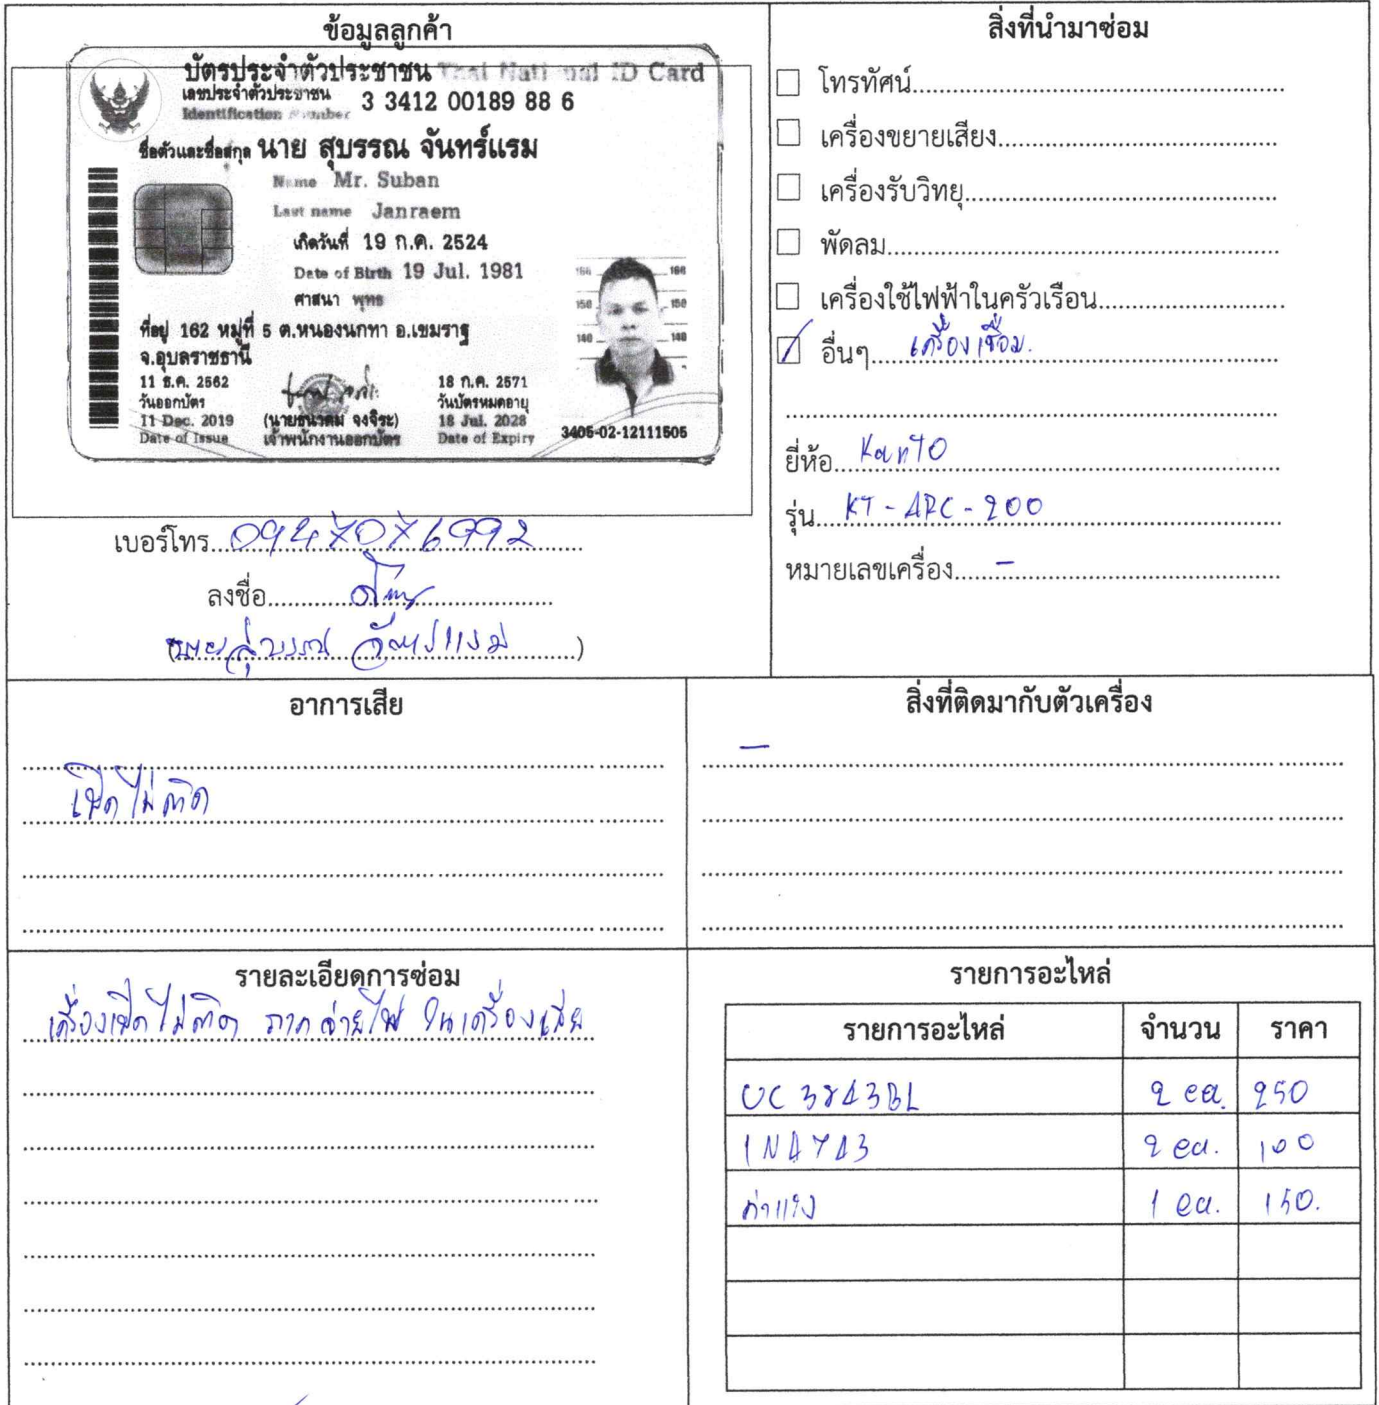 ข้อมูลลูกค้า
บัตรประจำตัวประชาชน Thai National ID Card
เลขประจำตัวประชาชน 3 3412 00189 88 6
Identification Number
ชื่อตัวและชื่อสกุล นาย สุบรรณ จันทร์แรม
Name Mr. Suban
Last name Janraem
เกิดวันที่ 19 ก.ค. 2524
Date of Birth 19 Jul. 1981
ศาสนา พุทธ
ที่อยู่ 162 หมู่ที่ 5 ต.หนองนกทา อ.เขมราฐ
จ.อุบลราชธานี
11 ธ.ค. 2562
วันออกบัตร
11 Dec. 2019
Date of Issue
(นายธนาคม จงจิระ)
เจ้าพนักงานออกบัตร
18 ก.ค. 2571
วันบัตรหมดอายุ
18 Jul. 2028
Date of Expiry
3405-02-12111505
เบอร์โทร 0947076992
ลงชื่อ
(นายสุบรรณ จันทร์แรม)
สิ่งที่นำมาซ่อม
โทรทัศน์
เครื่องขยายเสียง
เครื่องรับวิทยุ
พัดลม
เครื่องใช้ไฟฟ้าในครัวเรือน
อื่นๆ เครื่องเชื่อม.
ยี่ห้อ Kanto
รุ่น KT-ARC-200
หมายเลขเครื่อง -
อาการเสีย
เปิดไม่ติด
สิ่งที่ติดมากับตัวเครื่อง
-
รายละเอียดการซ่อม
เครื่องเปิดไม่ติด ภาคจ่ายไฟ ในเครื่องเสีย
รายการอะไหล่
รายการอะไหล่ จำนวน ราคา
UC3843BL 2 ea. 250
1N4743 2 ea. 100
ค่าแรง 1 ea. 150.